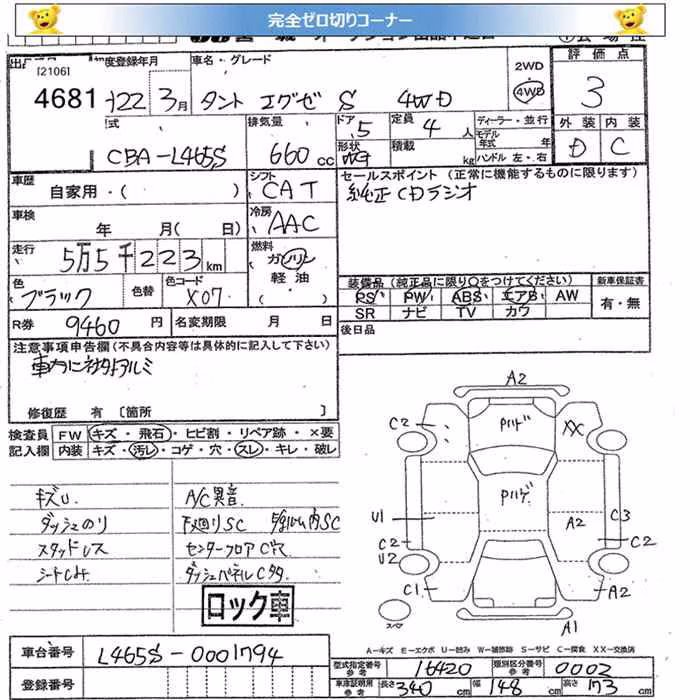 完全ゼロ切りコーナー
[2106]
初度登録年月
車名・グレード
2WD
4WD
評価点
4681
H22 3月
タント エグゼ S 4WD
3
型式
排気量
ドア
定員
ディーラー・並行
外装 内装
CBA-L465S
660cc
5
4人
モデル年式 年
D C
形状
積載
kg
ハンドル 左・右
車歴
自家用・( )
シフト
CAT
セールスポイント (正常に機能するものに限ります)
純正CDラジオ
車検
年 月( 日)
冷房
AAC
走行
5万5千223km
燃料
ガソリン
軽油
( )
色
ブラック
色替
色コード
X07
装備品(純正品に限り○をつけてください)
新車保証書
PS PW ABS エアB AW
SR ナビ TV カワ
有・無
R券 9460円
名変期限 月 日
後日品
注意事項申告欄(不具合内容等は具体的に記入して下さい)
車内に社外アルミ
修復歴 有 〔箇所 〕
検査員 FW キズ・飛石・ヒビ割・リペア跡・×要
記入欄 内装 キズ・汚レ・コゲ・穴・スレ・キレ・破レ
キズU
A/C異音
ダッシュのリ
下廻りSC
スタッドレス
センターフロアC穴
ダッシュパネルC
ロック車
A2
C2
XX
U1
A2
C3
C2
C2
U2
C1
A2
A1
スペア
A-キズ E-エクボ U-凹み W-補修跡 S-サビ C-腐食 XX-交換済
車台番号 L465S-0001794
登録番号
型式指定番号 参考 16420
類別区分番号 参考 0002
車庫証明用 参考 長さ 340cm 幅 148cm 高さ 173cm